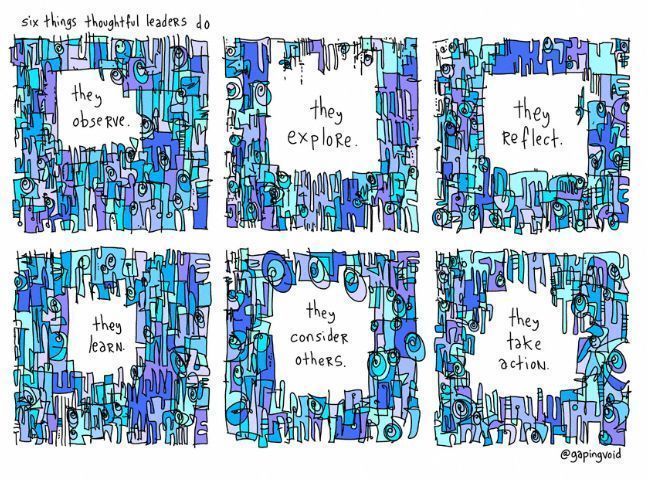 six things thoughtful leaders do
they
observe.
they
explore.
they
reflect.
they
learn.
they
consider
others.
they
take
action.
@gapingvoid